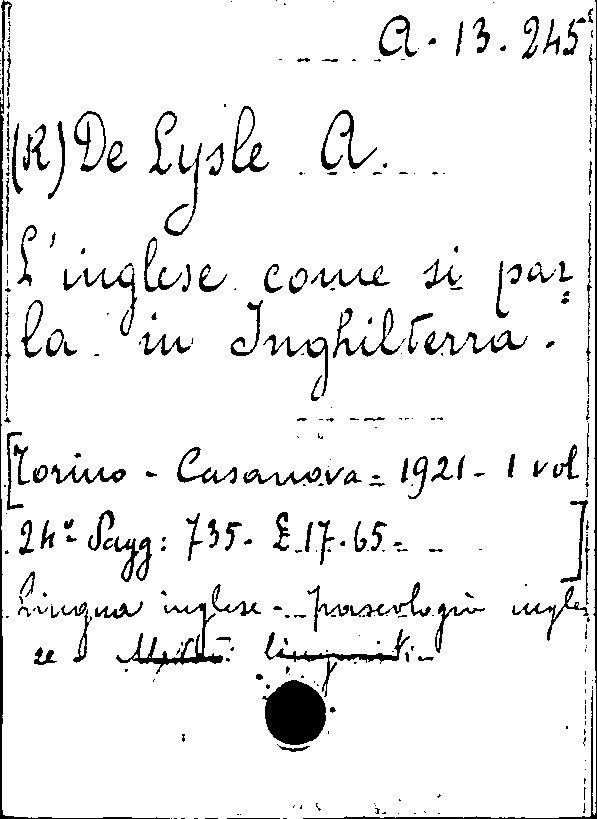 A. 13. 245
(R) De Lysle A.
L'inglese come si par=
la in Inghilterra.
[Torino - Casanova = 1921 - 1 vol
24° Pagg: 735. £ 17.65 - ]
Lingua inglese - fraseologia ingle
se -